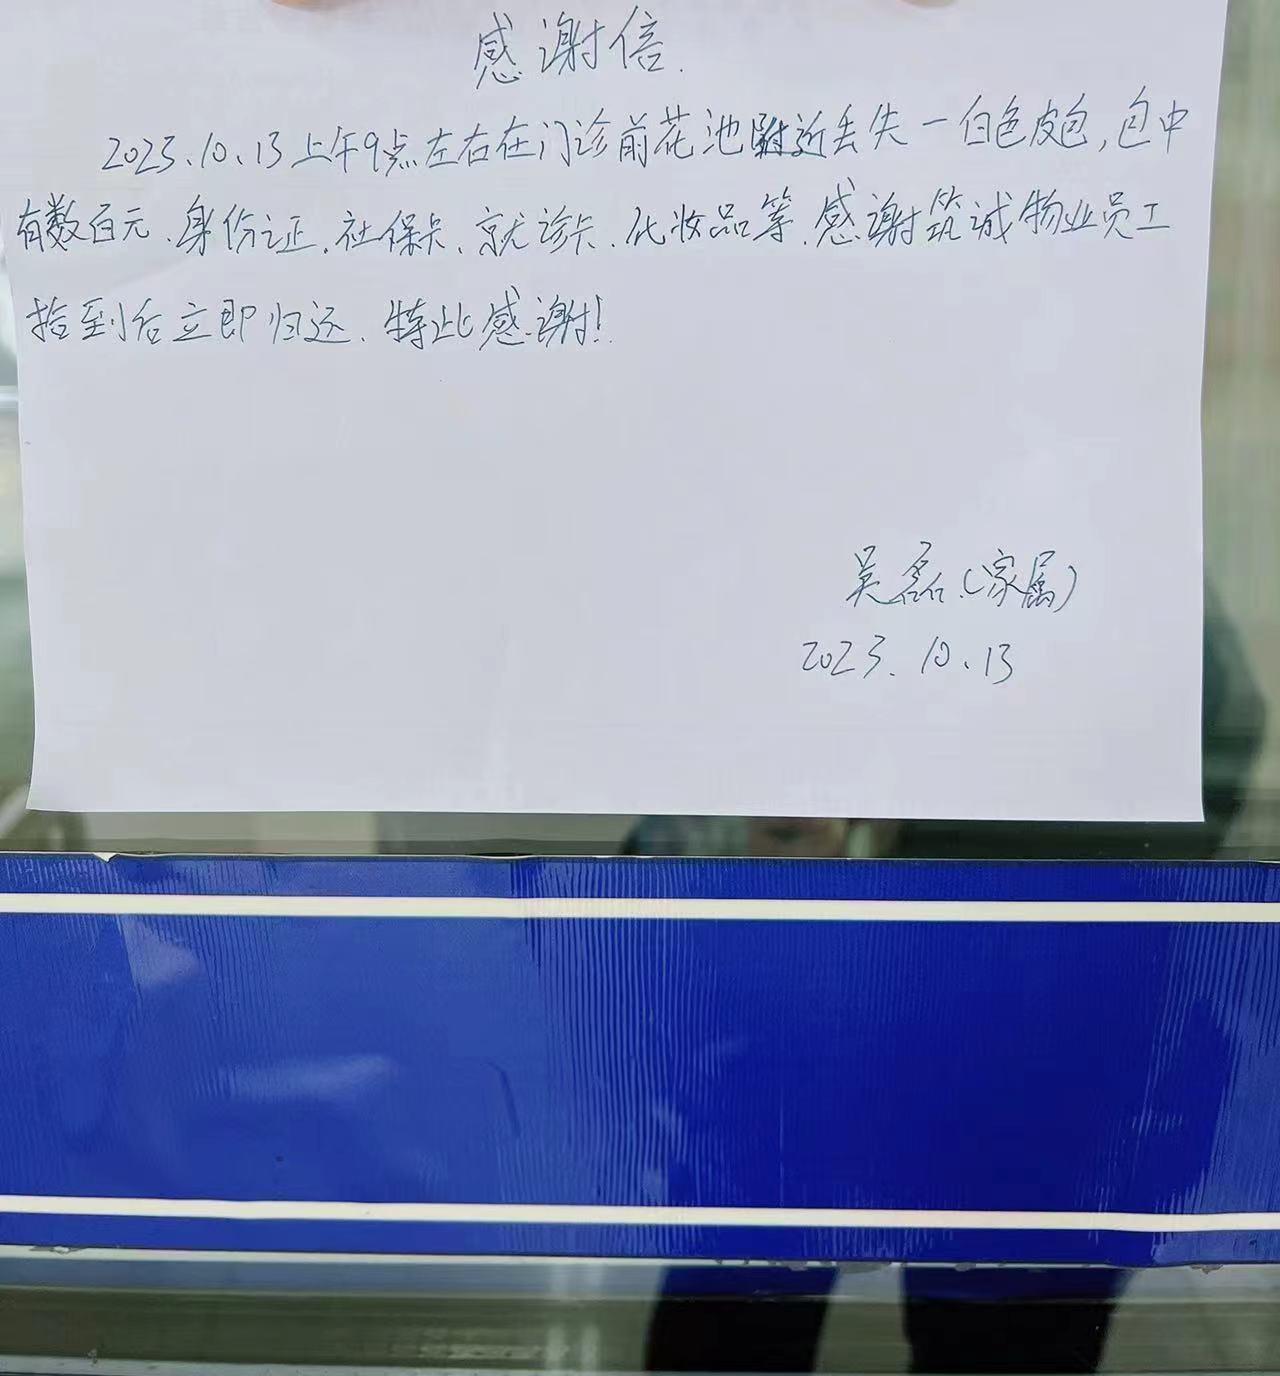 感谢信.
2023.10.13上午9点左右在门诊前花池附近丢失一白色皮包,包中
有数百元、身份证、社保卡、就诊卡、化妆品等.感谢筑诚物业员工
拾到后立即归还、特此感谢!
吴磊(家属)
2023.10.13